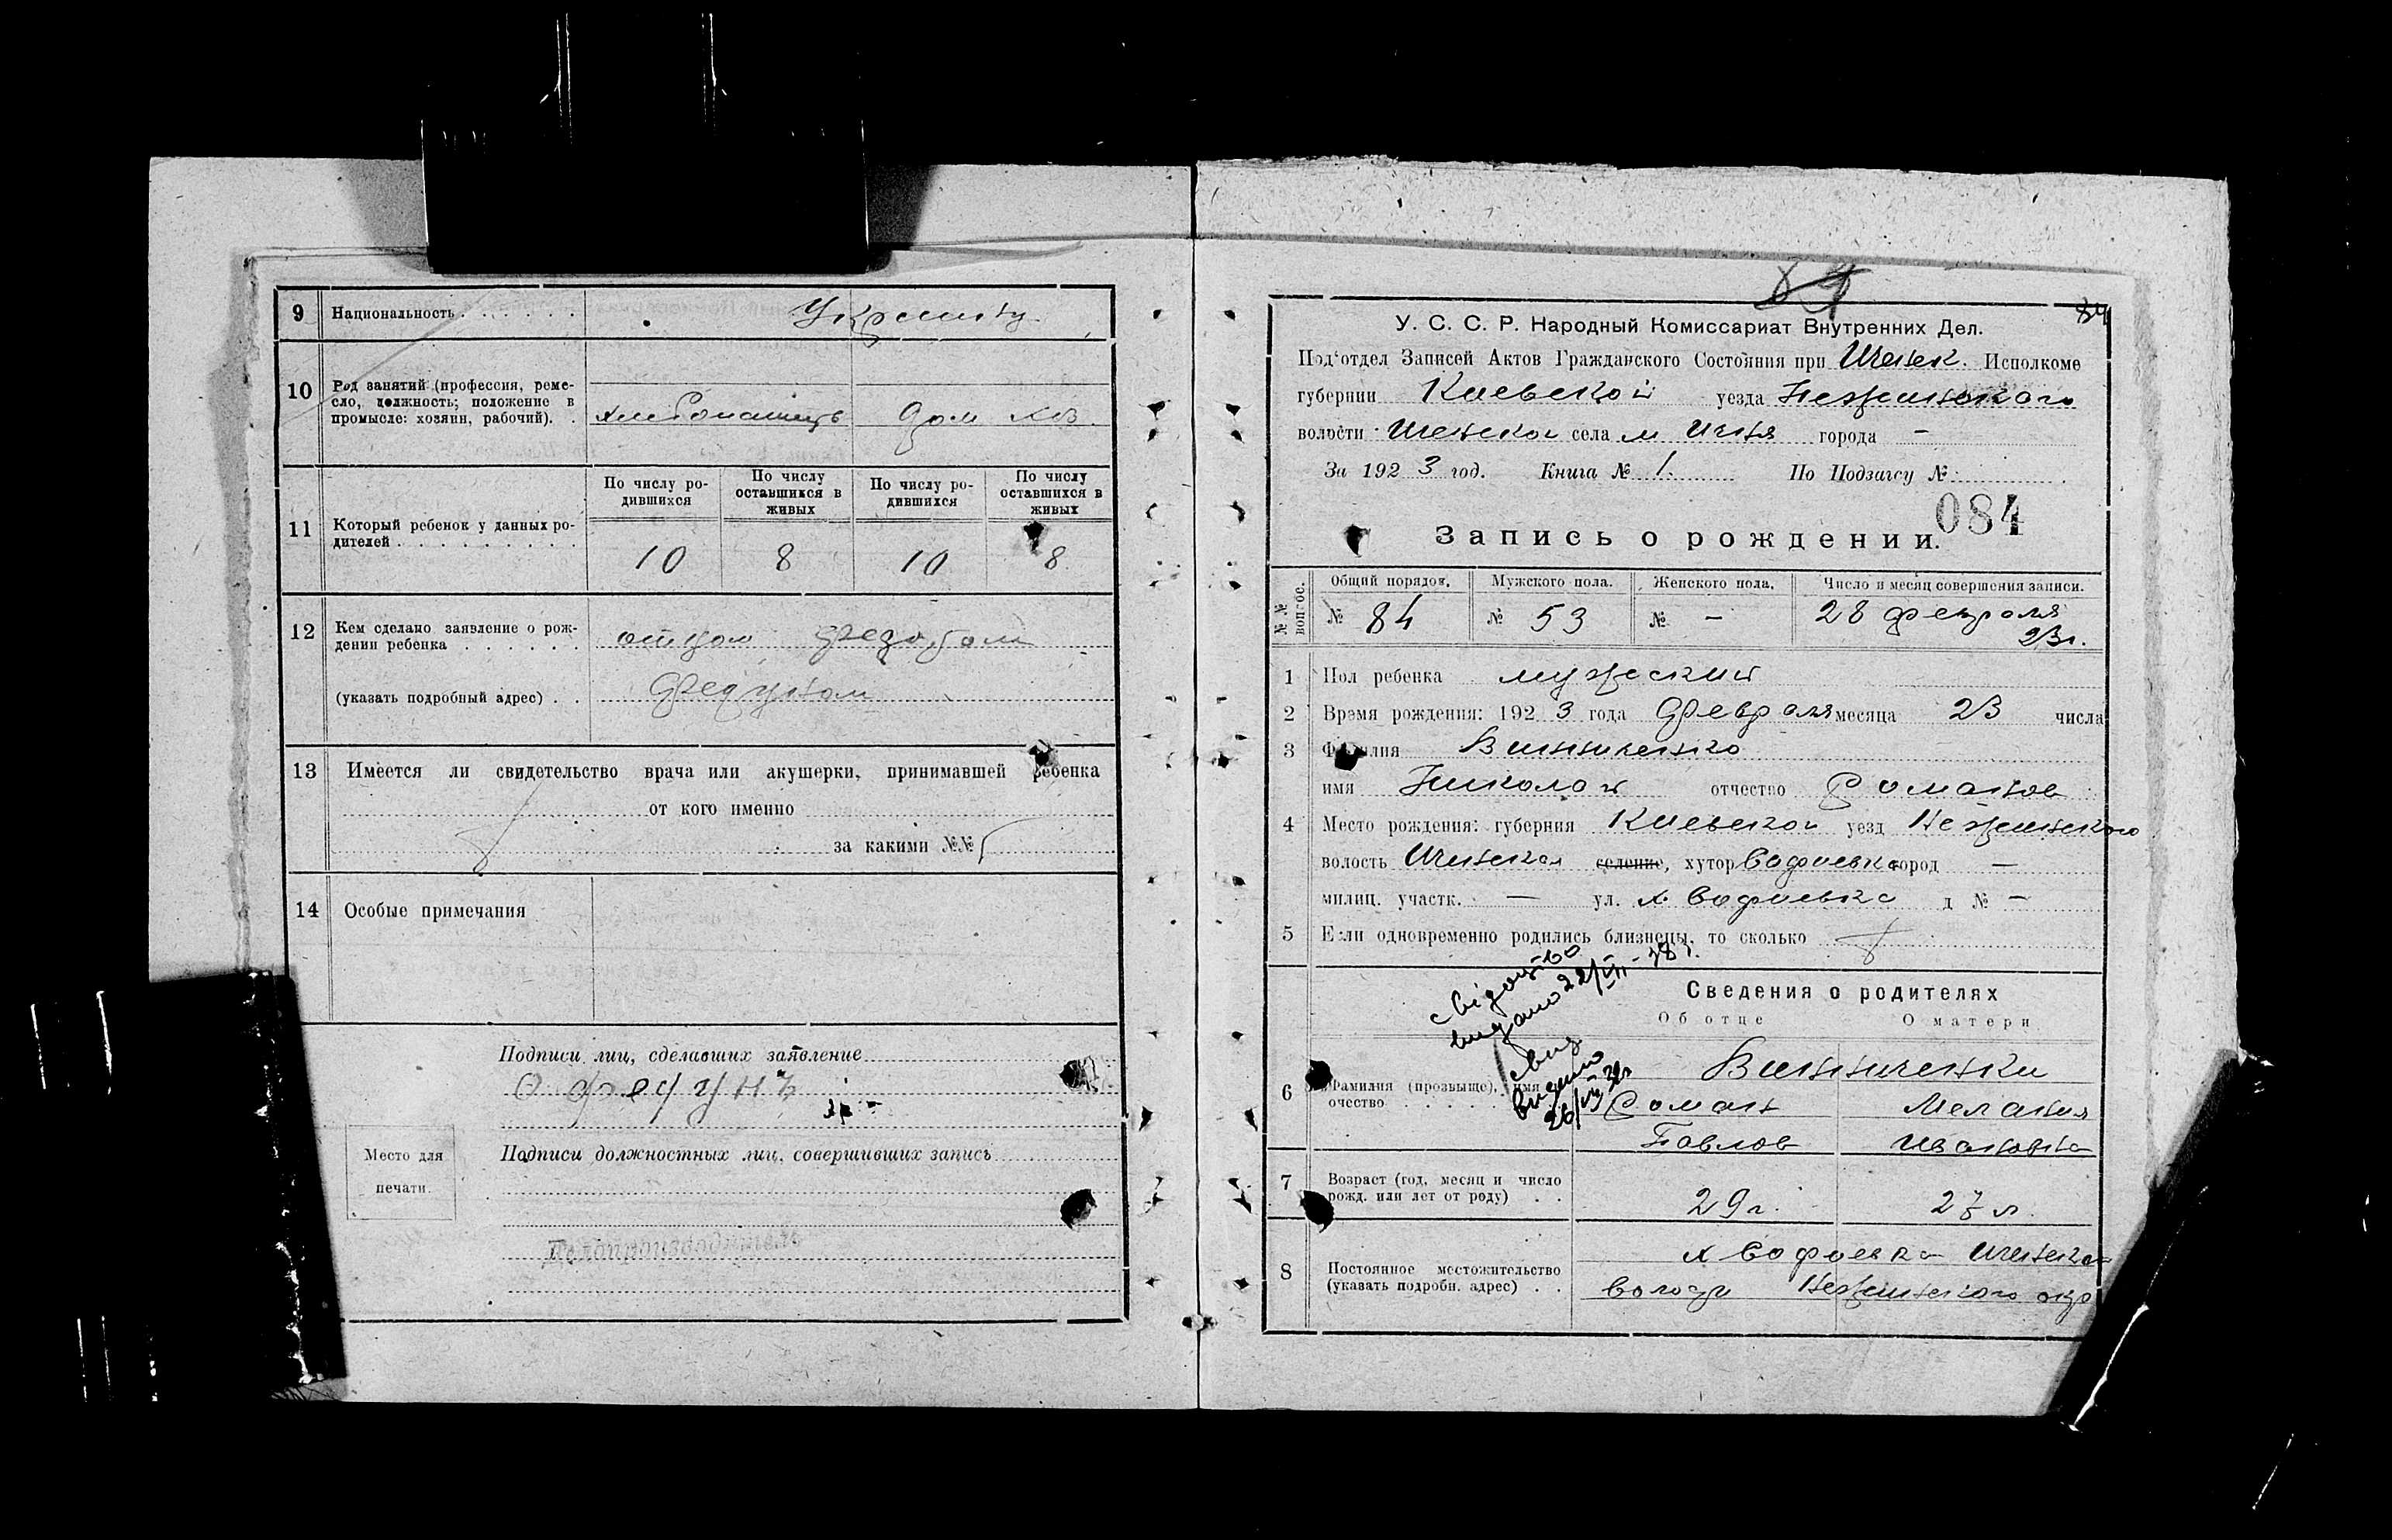 9 Национальность . . . . . . Украинцы
10 Род занятий (профессия, реме-
сло, должность; положение в
промысле: хозяин, рабочий). . хлебопашец дом хоз.
По числу ро-
дившихся По числу
оставшихся в
живых По числу ро-
дившихся По числу
оставшихся в
живых
11 Который ребенок у данных ро-
дителей . . . . . . . . . 10 8 10 8
12 Кем сделано заявление о рож-
дении ребенка . . . . . . отцом Федором
(указать подробный адрес) . . Федуном
13 Имеется ли свидетельство врача или акушерки, принимавшей ребенка
от кого именно
за какими №№
14 Особые примечания
Подписи лиц, сделавших заявление
Ф Федунъ
Место для
печати.
Подписи должностных лиц, совершивших запись
Делопроизводитель
84
84
У. С. С. Р. Народный Комиссариат Внутренних Дел.
Под'отдел Записей Актов Гражданского Состояния при Ичнян. Исполкоме
губернии Киевской уезда Нежинского
волости Иченской села м Ичня города —
За 1923 год. Книга № 1. По Подзагсу №
084
Запись о рождении.
№№ вопрос. Общий порядов. Мужского пола. Женского пола. Число и месяц совершения записи.
№ 84 № 53 № — 28 февраля
23г.
1 Пол ребенка мужеский
2 Время рождения: 1923 года Февраля месяца 23 числа
3 Фамилия Винниченко
имя Николай отчество Романов
4 Место рождения: губерния Киевской уезд Нежинского
волость Иченская селение, хутор Софиевка город —
милиц. участк. — ул. х. Софиевка д № —
5 Если одновременно родились близнецы, то сколько
свідоцтво
видано 22/VII-38 г.
Сведения о родителях
Об отце О матери
6 Фамилия (прозвыще), имя
очество . . . . . Винниченки
Роман Мелания
Павлов Ивановна
7 Возраст (год, месяц и число
рожд. или лет от роду) . . 29 г. 27 л.
8 Постоянное местожительство
(указать подробн. адрес) . . х Софиевка Иченской
волости Нежинского окр